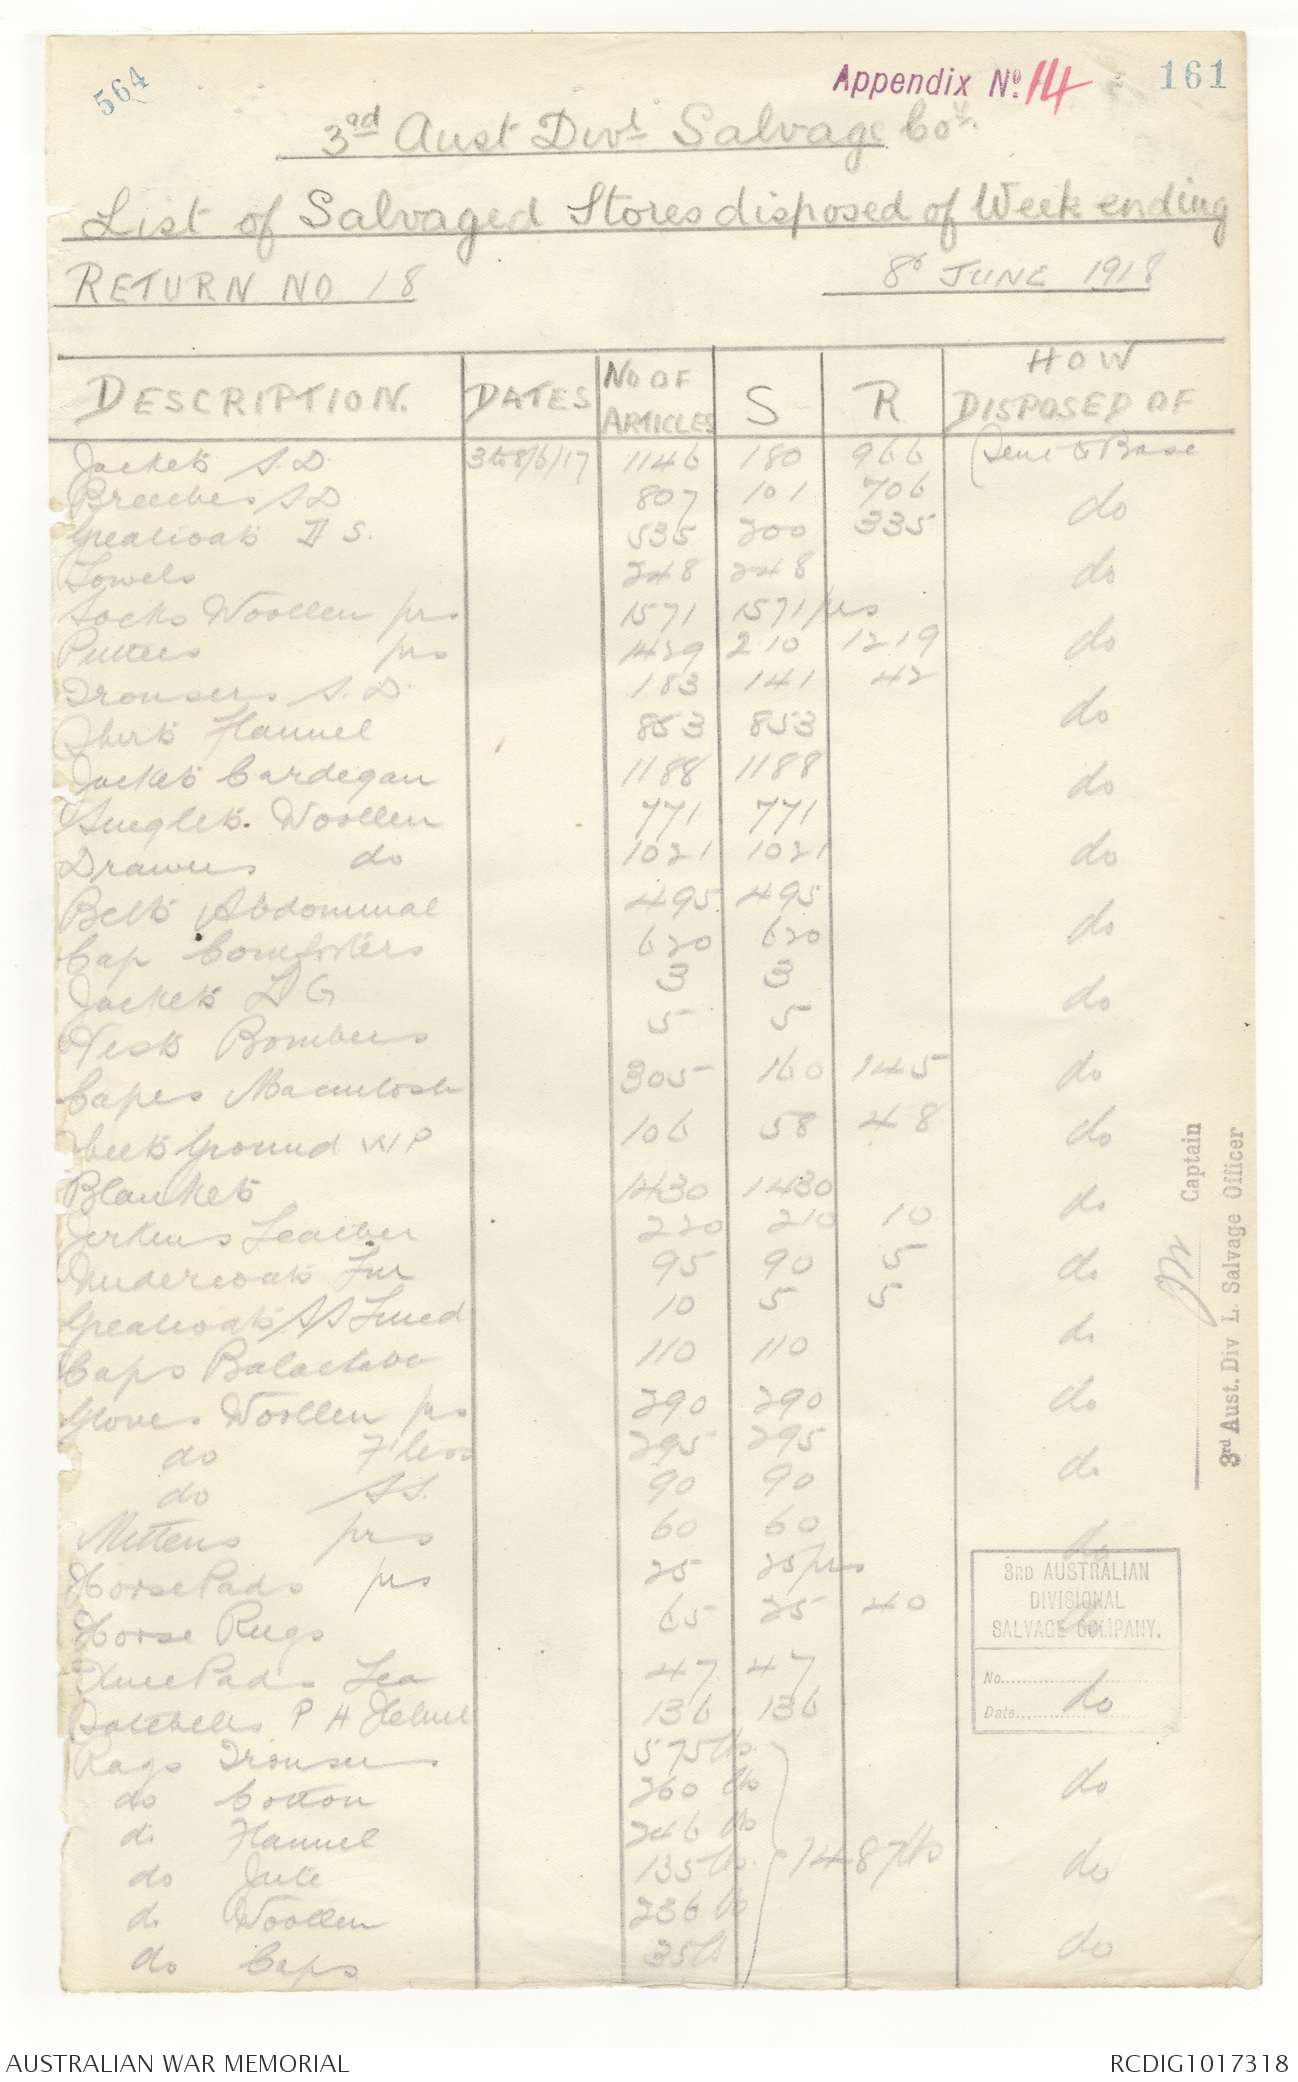 564
Appendix No. 14
161
3rd Aust Divl Salvage Coy.
List of Salvaged Stores disposed of Week ending
RETURN NO 18
8th JUNE 1918
DESCRIPTION. DATES NO OF ARTICLES S R HOW DISPOSED OF
Jackets S.D. 3to8/6/17 1146 180 966 Sent to Base
Breeches SD 807 101 706 do
Greatcoats D S. 535 200 335
Towels 248 248 do
Socks Woollen prs 1571 1571 prs
Puttees prs 1429 210 1219 do
Trousers S.D. 183 141 42
Shirts Flannel 853 853 do
Jackets Cardegan 1188 1188 do
Singlets. Woollen 771 771
Drawers do 1021 1021 do
Belts Abdominal 495 495 do
Cap Comforters 620 620
Jackets D G 3 3 do
Vests Bombers 5 5
Capes Macintosh 305 160 145 do
Sheets Ground WP 106 58 48 do
Blankets 1430 1430 do
Jerkins Leather 220 210 10
Undercoats Fur 95 90 5 do
Greatcoats SS Lined 10 5 5 do
Caps Balaclava 110 110
Gloves Woollen prs 290 290 do
do F'less 295 295 do
do SS. 90 90
Mittens prs 60 60 do
Horse Pads prs 25 25 prs
Horse Rugs 65 25 40 do
Knee Pads Lea 47 47 do
Satchells P H Helmet 136 136
Rags Trousers 575 lbs
do Cotton 260 lbs do
do Flannel 246 lbs
do Jute 135 lbs 1487 lbs do
do Woollen 236 lbs
do Caps 35 lb do
Captain
3rd Aust. Div L. Salvage Officer
3RD AUSTRALIAN
DIVISIONAL
SALVAGE COMPANY.
No.
Date
AUSTRALIAN WAR MEMORIAL
RCDIG1017318